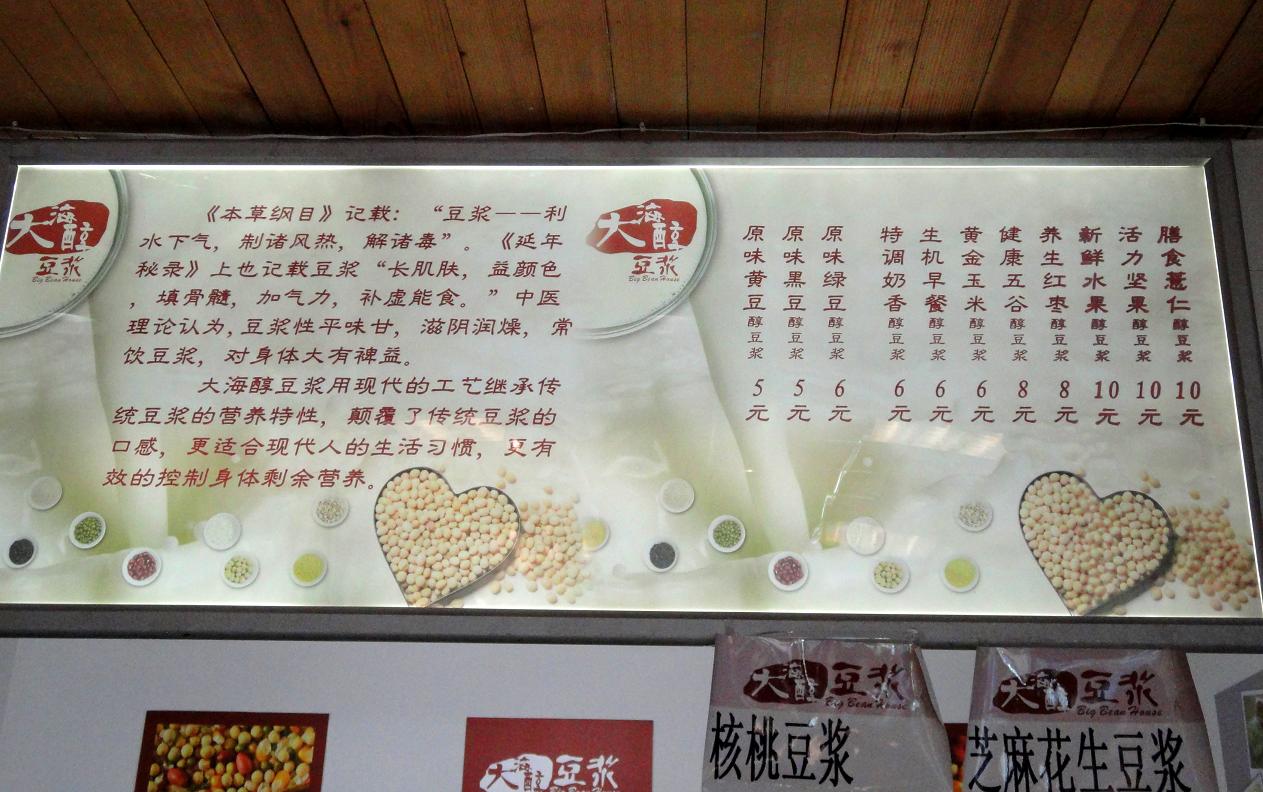 大海醇
豆浆
Big Bean House
《本草纲目》记载：“豆浆——利
水下气，制诸风热，解诸毒”。《延年
秘录》上也记载豆浆“长肌肤，益颜色
，填骨髓，加气力，补虚能食。”中医
理论认为,豆浆性平味甘，滋阴润燥，常
饮豆浆，对身体大有裨益。
大海醇豆浆用现代的工艺继承传
统豆浆的营养特性，颠覆了传统豆浆的
口感，更适合现代人的生活习惯，更有
效的控制身体剩余营养。
大海醇
豆浆
Big Bean House
原味黄豆醇豆浆 5元
原味黑豆醇豆浆 5元
原味绿豆醇豆浆 6元
特调奶香醇豆浆 6元
生机早餐醇豆浆 6元
黄金玉米醇豆浆 6元
健康五谷醇豆浆 8元
养生红枣醇豆浆 8元
新鲜水果醇豆浆 10元
活力坚果醇豆浆 10元
膳食薏仁醇豆浆 10元
大海醇豆浆
Big Bean House
大海醇豆浆
Big Bean House
核桃豆浆
大海醇豆浆
Big Bean House
芝麻花生豆浆